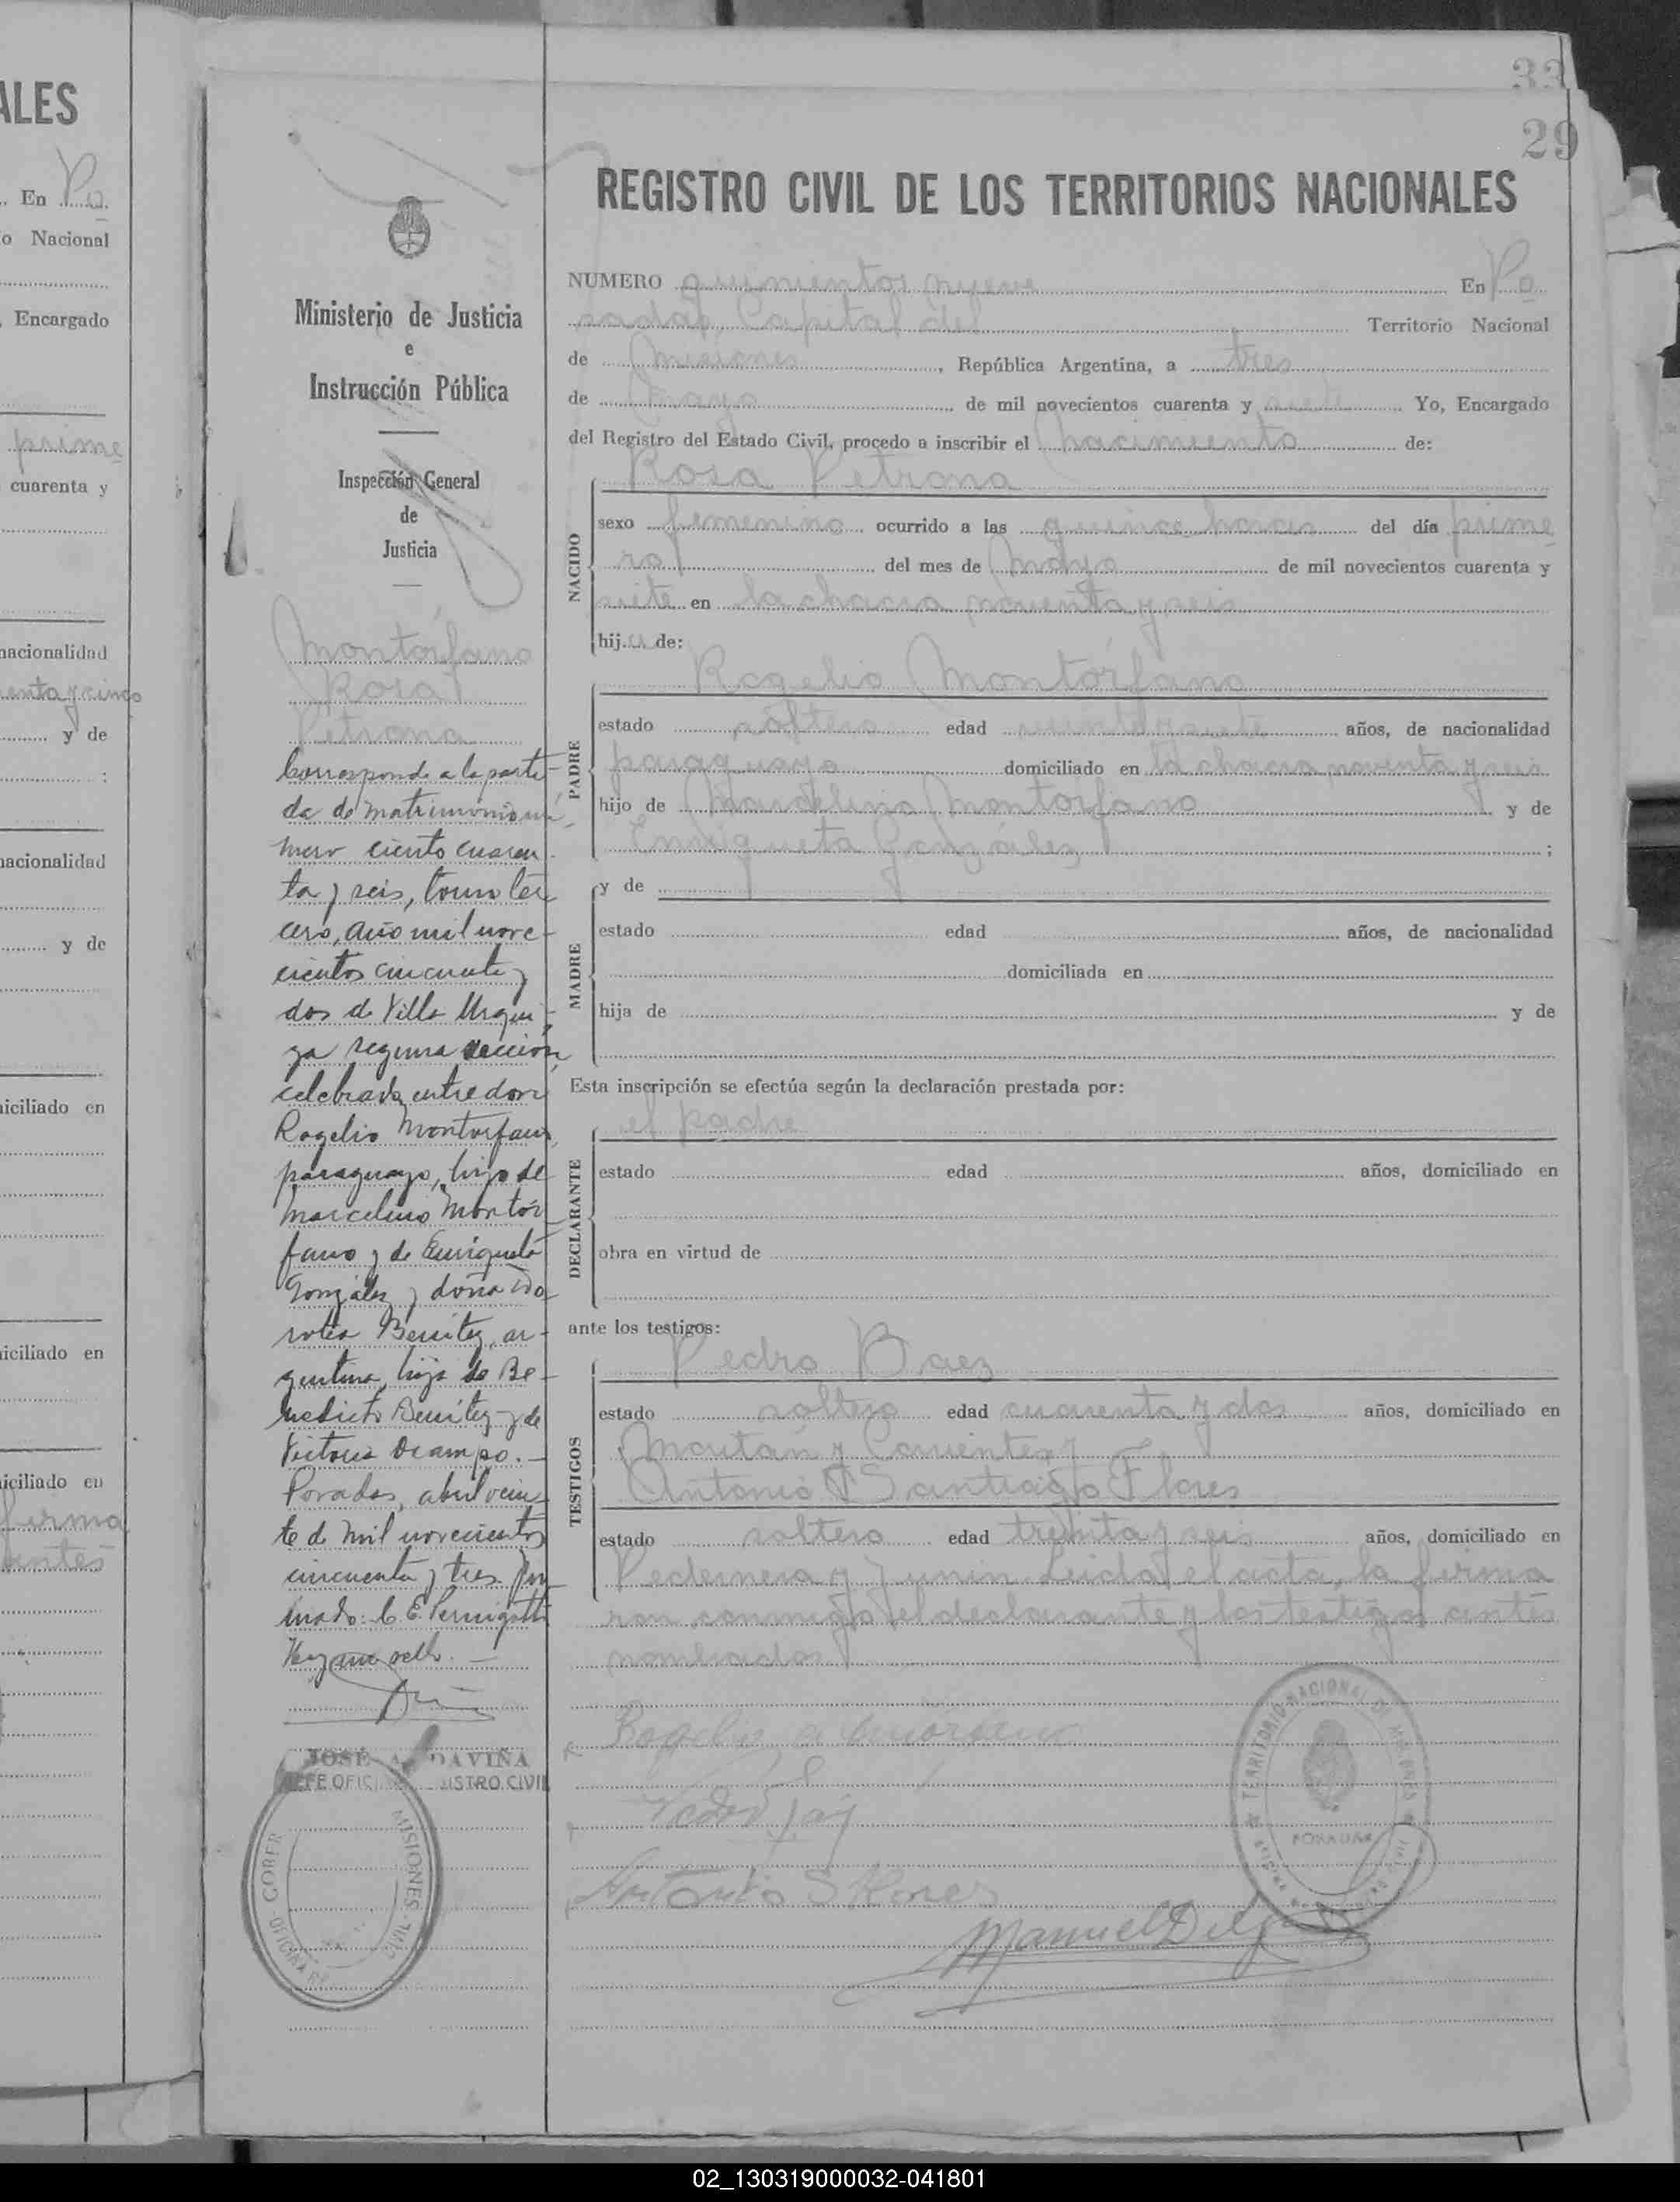 ALES
En Po
o Nacional
, Encargado
prime
cuarenta y
nacionalidad
enta y cinco
y de
;
nacionalidad
y de
niciliado en
niciliado en
niciliado en
firma
antes
33
29
REGISTRO CIVIL DE LOS TERRITORIOS NACIONALES
Ministerio de Justicia
e
Instrucción Pública
Inspección General
de
Justicia
Montórfano
Rosa
Petrona
Corresponde a la parti-
da de matrimonio nú-
mero ciento cuaren-
ta y seis, tomo ter
cero, año mil nove-
cientos cincuenta y
dos de Villa Urqui-
za segunda sección,
celebrada entre don
Rogelio Montorfano,
paraguayo, hijo de
Marcelino Montór
fano y de Enriqueta
González y doña Do
rotea Benítez, ar-
gentina, hija de Be-
nedicto Benítez y de
Victoria Ocampo.-
Posadas, abril vein-
te de mil novecientos
cincuenta y tres. Fir
mado: C. E. Pernigotti
Hay un sello. -
JOSÉ A. DAVIÑA
JEFE OFIC REGISTRO CIVIL
GOBER MISIONES
OFICINA
NUMERO quinientos nueve En Po
sadas, Capital del Territorio Nacional
de Misiones, República Argentina, a tres
de Mayo de mil novecientos cuarenta y siete Yo, Encargado
del Registro del Estado Civil, procedo a inscribir el nacimiento de:
NACIDO
Rosa Petrona
sexo femenino ocurrido a las quince horas del día prime
ro del mes de Mayo de mil novecientos cuarenta y
siete en la chacra noventa y seis
hija de:
PADRE
Rogelio Montórfano
estado soltero edad veintisiete años, de nacionalidad
paraguaya domiciliado en la chacra noventa y seis
hijo de Marcelino Montorfano y de
Enriqueta González ;
MADRE
y de
estado edad años, de nacionalidad
domiciliada en
hija de y de
Esta inscripción se efectúa según la declaración prestada por:
DECLARANTE
el padre
estado edad años, domiciliado en
obra en virtud de
ante los testigos:
TESTIGOS
Pedro Baez
estado soltero edad cuarenta y dos años, domiciliado en
y Corrientes y
Antonio Santiago Flores
estado soltero edad treinta y seis años, domiciliado en
Pedernera y Junin Leida el acta, la firma
ron conmigo el declarante y los testigos antes
nombrados
Antonio S Flores
Manuel Delgado
TERRITORIO NACIONAL DE MISIONES
POSADAS
02_130319000032-041801